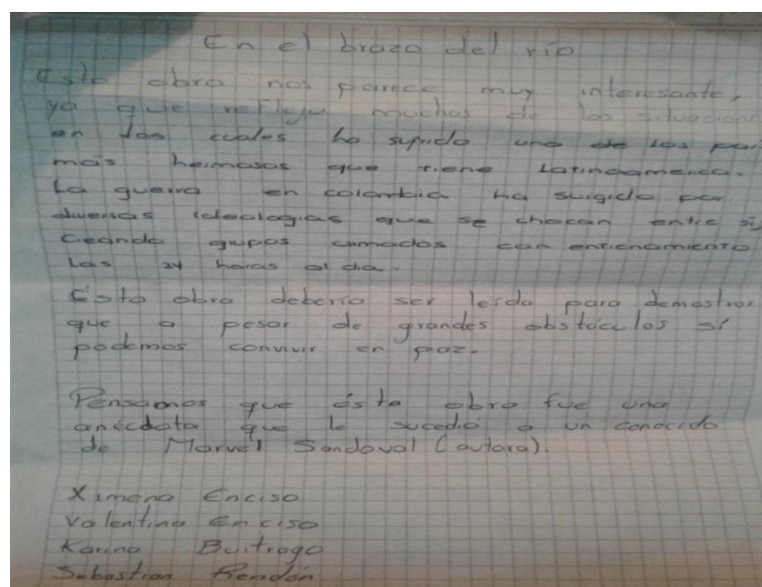 En el brazo del río
Esta obra nos parece muy interesante,
ya que refleja muchas de las situaciones
en las cuales ha sufrido uno de los
más hermosos que tiene Latinoamerica.
La guerra en colombia ha surgido por
diversas ideologias que se chocan entre sí,
creando grupos armados con entrenamiento
las 24 horas al dia.
Ésta obra debería ser leída para demostrar
que a pesar de grandes obstáculos sí
podemos convivir en paz.
Pensamos que ésta obra fue una
anécdota que le sucedió a un conocido
de Marvel Sandoval (autora).
Ximena Enciso
Valentina Enciso
Karina Buitrago
Sebastian Rendón